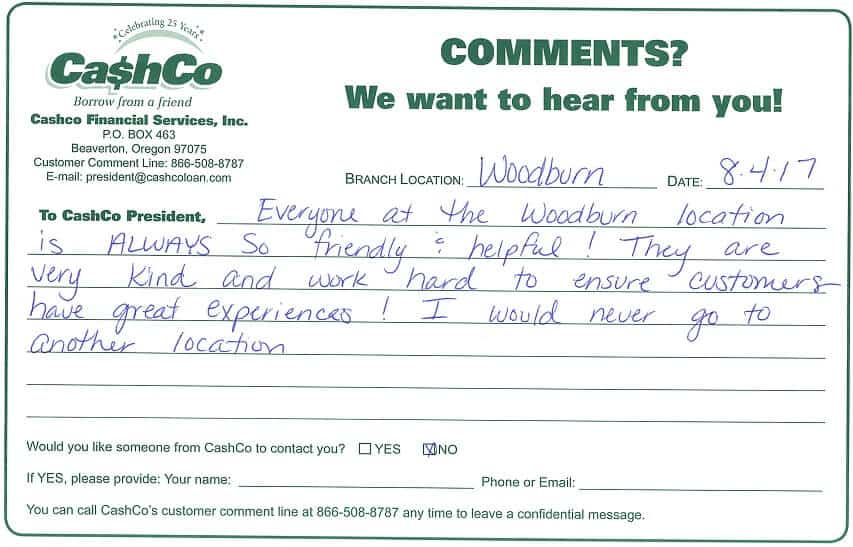 Celebrating 25 Years
Ca$hCo
Borrow from a friend
Cashco Financial Services, Inc.
P.O. BOX 463
Beaverton, Oregon 97075
Customer Comment Line: 866-508-8787
E-mail: president@cashcoloan.com
COMMENTS?
We want to hear from you!
BRANCH LOCATION: Woodburn DATE: 8.4.17
To CashCo President, Everyone at the Woodburn location
is ALWAYS so friendly & helpful! They are
very kind and work hard to ensure customers
have great experiences! I would never go to
another location
Would you like someone from CashCo to contact you? ☐ YES ☑ NO
If YES, please provide: Your name: Phone or Email:
You can call CashCo's customer comment line at 866-508-8787 any time to leave a confidential message.